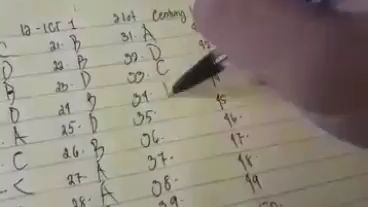 12 - ICT 1 21st Century
21. B 31. A
D 22. B 32. D
B 23. D 33. C
D 24. B 34.
A 25. D 35. 45
C 26. B 36. 46.
27. A 37. 47.
28. A 38. 48.
39. 49